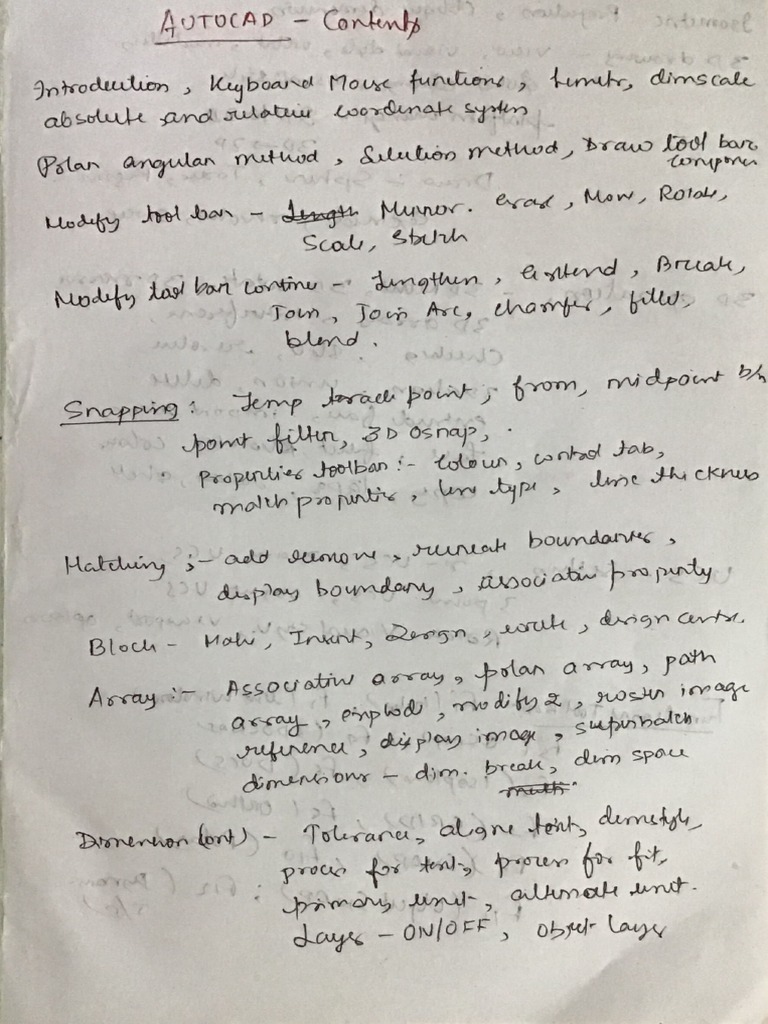 AUTOCAD - Contents
Introduction, Keyboard Mouse functions, limits, dimscale
absolute and relative coordinate system
Polar angular method, Selection method, Draw tool bar
componen
Modify tool bar - Length Mirror. erase, Move, Rotate,
Scale, Stretch
Modify tool bar contine - Lengthen, Extend, Break,
Join, Join Arc, chamfer, fillet,
blend.
Snapping: Temp track point, from, midpoint b/n
point filter, 3D osnap, .
Properties toolbar :- Colour, control tab,
match properties, line type, line thickness
Hatching ;- add remove, recreate boundaries,
display boundary, associative property
Block - Make, Insert, , write, design centre.
Array :- Associative array, polar array, path
array, explode, modify 2, raster image
reference, display image, superhatch
dimensions - dim. break, dim space
Dimension (cont) - Tolerance, aligne text, dimstyle,
process for text, process for fit,
primary unit, alternate unit.
Layer - ON/OFF, object layer